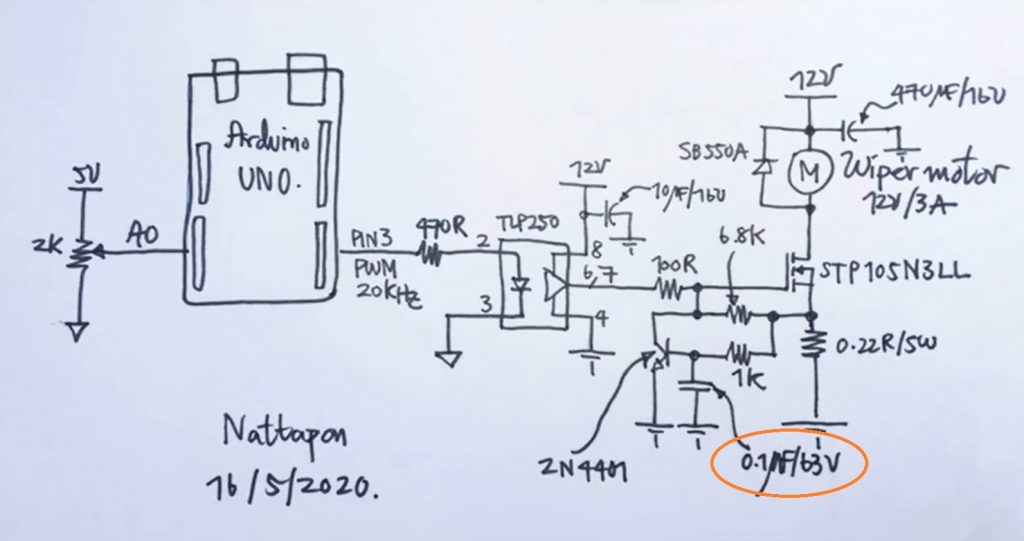 12V
470µF/16V
SB550A
M
Wiper motor
12V/3A
Arduino
UNO.
5V
2K
A0
PIN3
PWM
20KHz
470R
2
3
TLP250
12V
10µF/16V
8
6,7
4
100R
6.8K
STP105N3LL
0.22R/5W
1K
2N4401
0.1µF/63V
Nattapon
16/5/2020.